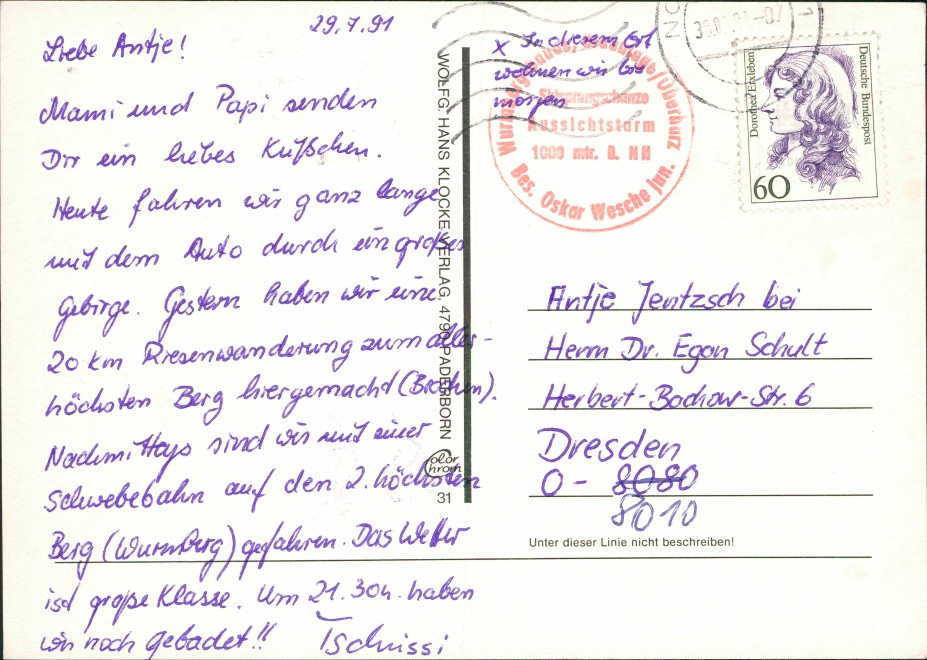 29.7.91
Liebe Antje!
Mami und Papi senden
Dir ein liebes Küßchen.
Heute fahren wir ganz lange
mit dem Auto durch ein großes
Gebirge. Gestern haben wir eine
20 km Riesenwanderung zum aller-
höchsten Berg hier gemacht (Brocken).
Nachmittags sind wir mit einer
Schwebebahn auf den 2. höchsten
Berg (Wurmberg) gefahren. Das Wetter
ist große Klasse. Um 21.30h. haben
wir noch gebadet!! Tschüssi
WOLFG. HANS KLOCKE VERLAG, 4790 PADERBORN
Color Chrom
31
x In diesem Ort
wohnen wir bis
morgen
Wurmberg Braunlage/Oberharz
Skisprungschanze
Aussichtsturm
1000 mtr. ü. NN
Bes. Oskar Wesche jun.
Dorothea Erxleben
Deutsche Bundespost
60
Antje Jentzsch bei
Herrn Dr. Egon Schult
Herbert-Bochow-Str. 6
Dresden
O - 8080
8010
Unter dieser Linie nicht beschreiben!